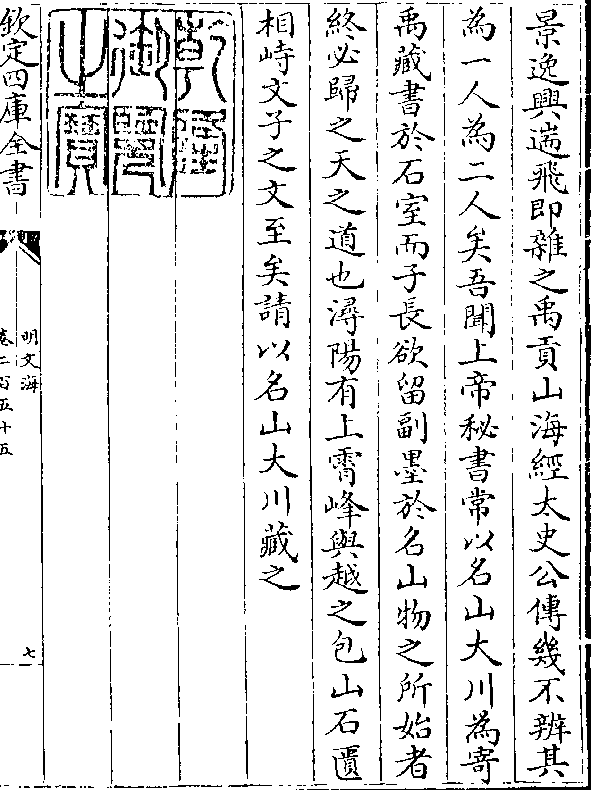 景逸興遄飛即雜之禹貢山海經太史公傳幾不辨其
為一人為二人矣吾聞上帝秘書常以名山大川為寄
禹藏書於石室而子長欲留副墨於名山物之所始者
終必歸之天之道也潯陽有上霄峰與越之包山石匱
相峙文子之文至矣請以名山大川藏之
乾隆
御覽
之寶
欽定四庫全書
明文海
卷二百五十五
七